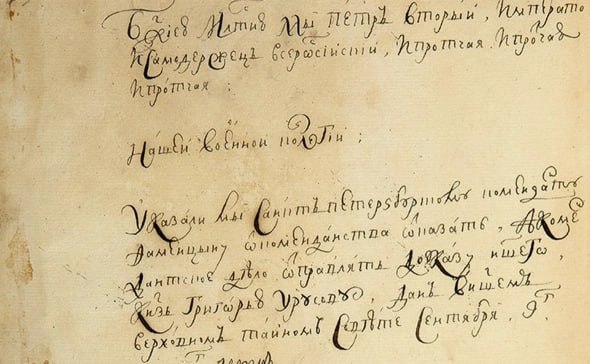 Бжиею млтию Мы Петръ вторый, Императо
и Самодержецъ всеросiйскiй, и протчая и протчая
и протчая:
Нашей военной колегiи:
Указали мы Санктъ петерзбурскому коменданту
от комендантства отказать, а коме
дантское дѣло отправлять до указу
Князь Григорью Урусову, Данъ в нашемъ
верховномъ тайномъ Совѣте Сентября, 9г